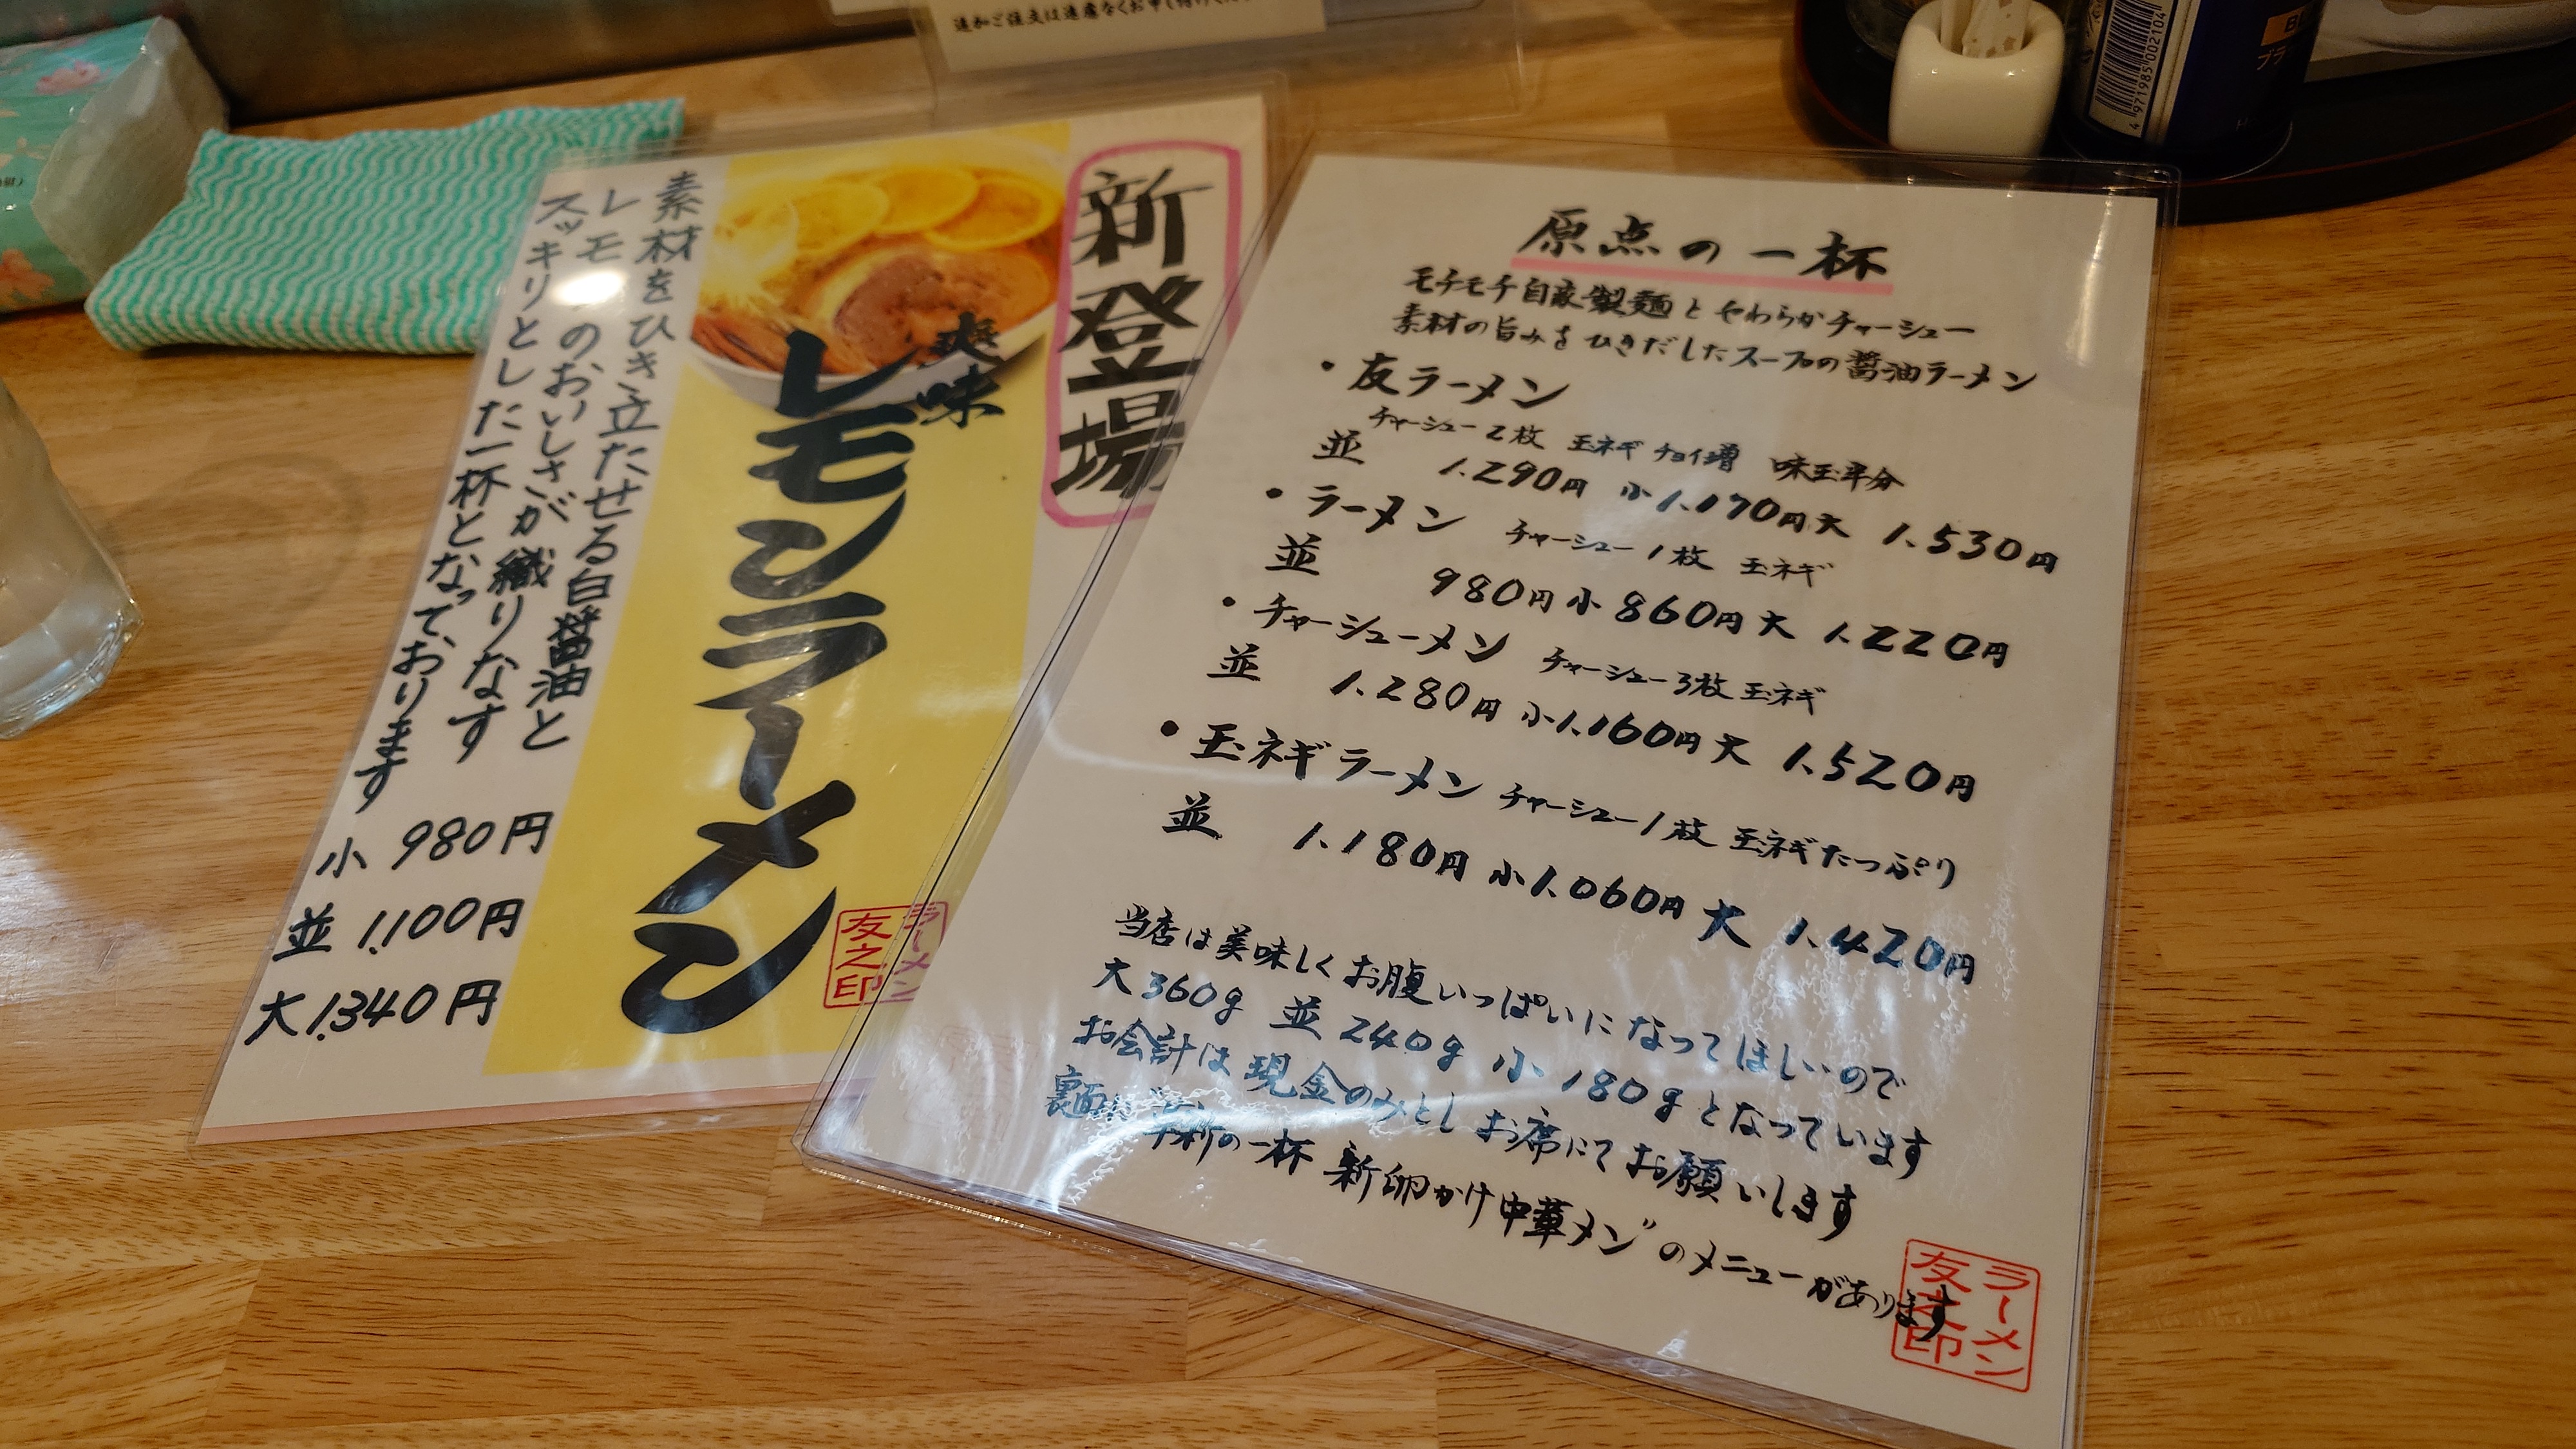 追加ご注文は遠慮なくお申し付けくだ
4971985002104
新登場
爽味
レモンラーメン
素材をひき立たせる白醤油と
レモ のおいしさが織りなす
スッキリとした一杯となっております
小 980円
並 1,100円
大 1,340円
ラーメン
友之印
原点の一杯
モチモチ自家製麺とやわらかチャーシュー
素材の旨みをひきだしたスープの醤油ラーメン
・友ラーメン
チャーシュー2枚 玉ネギチョイ増 味玉半分
並 1,290円 小1,170円 大 1,530円
・ラーメン チャーシュー1枚 玉ネギ
並 980円 小860円 大 1,220円
・チャーシューメン チャーシュー3枚 玉ネギ
並 1,280円 小1,160円 大 1,520円
・玉ネギラーメン チャーシュー1枚 玉ネギたっぷり
並 1,180円 小1,060円 大 1,420円
当店は美味しくお腹いっぱいになってほしいので
大360g 並240g 小180gとなっています
お会計は現金のみとしお席にてお願いします
裏面に の一杯 新卵かけ中華メン"のメニューがあります
ラーメン
友之印